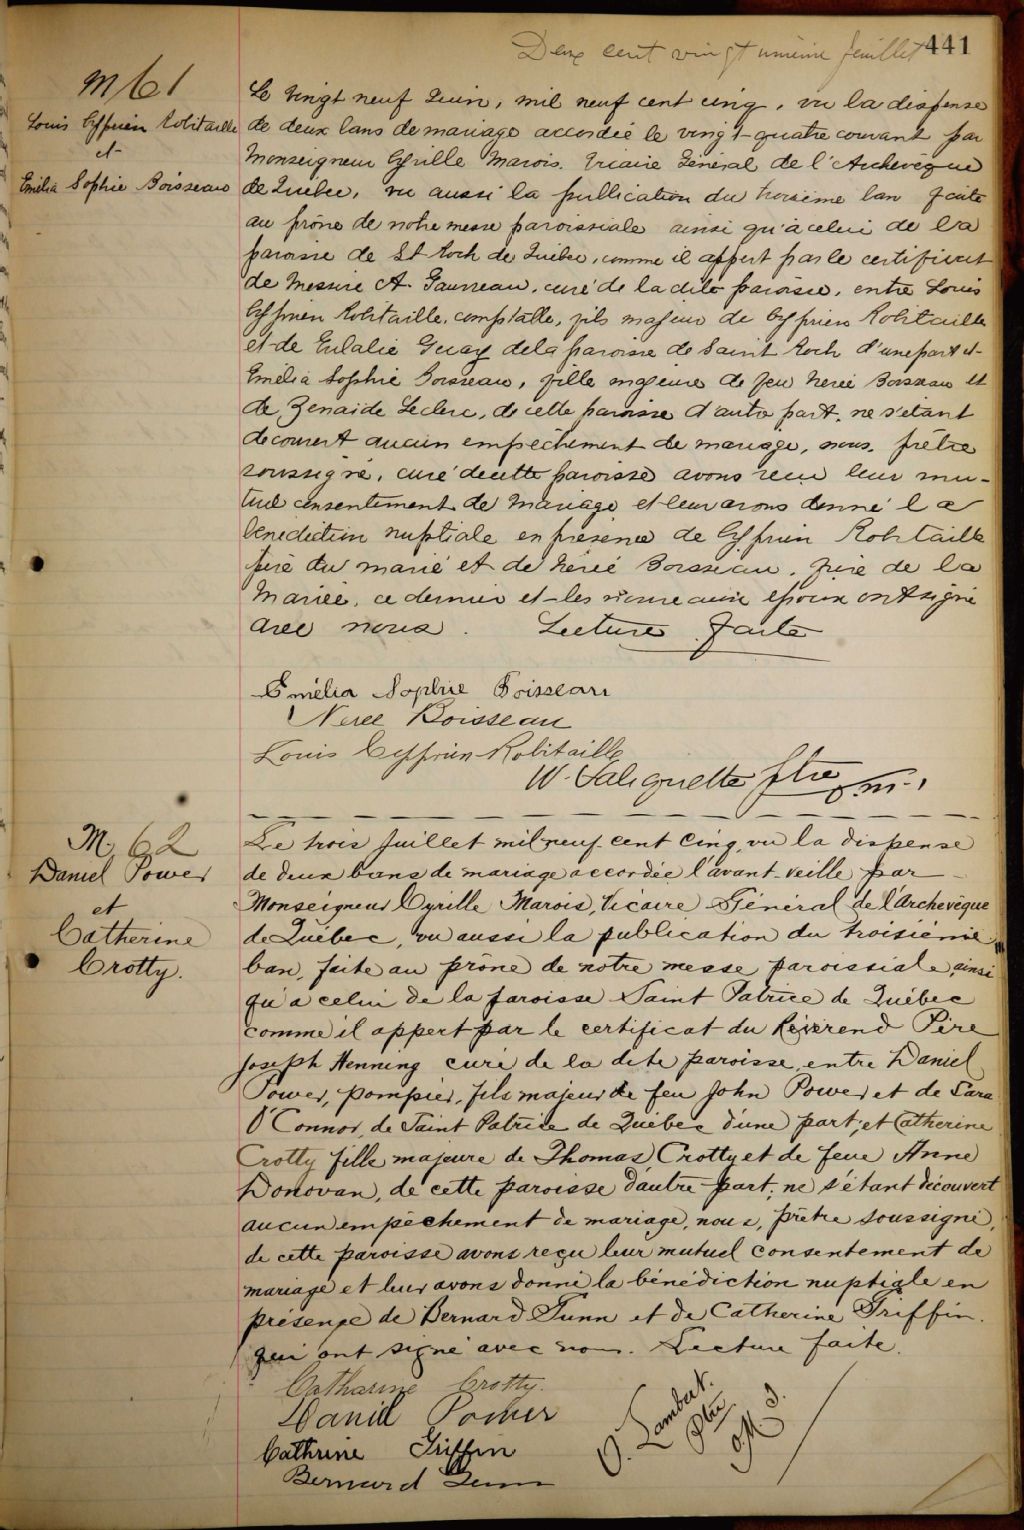 Deux cent vingt unième feuillet 441
M 61
Louis Cyprien Robitaille
et
Emélia Sophie Boisseau
Le vingt neuf Juin, mil neuf cent cinq, vu la dispense
de deux bans de mariage accordée le vingt-quatre courant par
Monseigneur Cyrille Marois. Vicaire Général de l'Archevêque
de Québec, vu aussi la publication du troisième ban faite
au prône de notre messe paroissiale ainsi qu'à celui de la
paroisse de St Roch de Québec, comme il appert par le certificat
de Messire A. Gauvreau, curé de la dite paroisse, entre Louis
Cyprien Robitaille, comptable, fils majeur de Cyprien Robitaille
et de Eulalie Guay de la paroisse de Saint Roch d'une part et
Emélia Sophie Boisseau, fille majeure de feu Nérée Boisseau et
de Zénaïde Leclerc, de cette paroisse d'autre part, ne s'étant
découvert aucun empêchement de mariage, nous, prêtre
soussigné, curé de cette paroisse avons reçu leur mu-
tuel consentement de mariage et leur avons donné la
bénédiction nuptiale en présence de Cyprien Robitaille
père du marié et de Nérée Boisseau, frère de la
Mariée, ce dernier et les nouveaux époux ont signé
avec nous. Lecture faite
Emélia Sophie Boisseau
Neree Boisseau
Louis Cyprien Robitaille
W. Valiquette ptre o.m.i
M. 62
Daniel Power
et
Catherine
Crotty.
Le trois Juillet mil neuf cent cinq, vu la dispense
de deux bans de mariage accordée l'avant-veille par
Monseigneur Cyrille Marois, Vicaire Général de l'Archevêque
de Québec, vu aussi la publication du troisième
ban, faite au prône de notre messe paroissiale, ainsi
qu'à celui de la paroisse Saint Patrice de Québec
comme il appert par le certificat du Révérend Père
Joseph Henning curé de la dite paroisse, entre Daniel
Power, pompier, fils majeur de feu John Power et de Sara
O'Connor, de Saint Patrice de Québec d'une part; et Catherine
Crotty fille majeure de Thomas Crotty et de feue Anne
Donovan, de cette paroisse d'autre part; ne s'étant découvert
aucun empêchement de mariage, nous, prêtre soussigné,
de cette paroisse avons reçu leur mutuel consentement de
mariage et leur avons donné la bénédiction nuptiale en
présence de Bernard Gunn et de Catherine Griffin.
qui ont signé avec nous. Lecture faite.
Catharine Crotty.
Daniel Power
Cathrine Griffin
Bernard Gunn
O. Lambert.
Ptre
O.M.I.